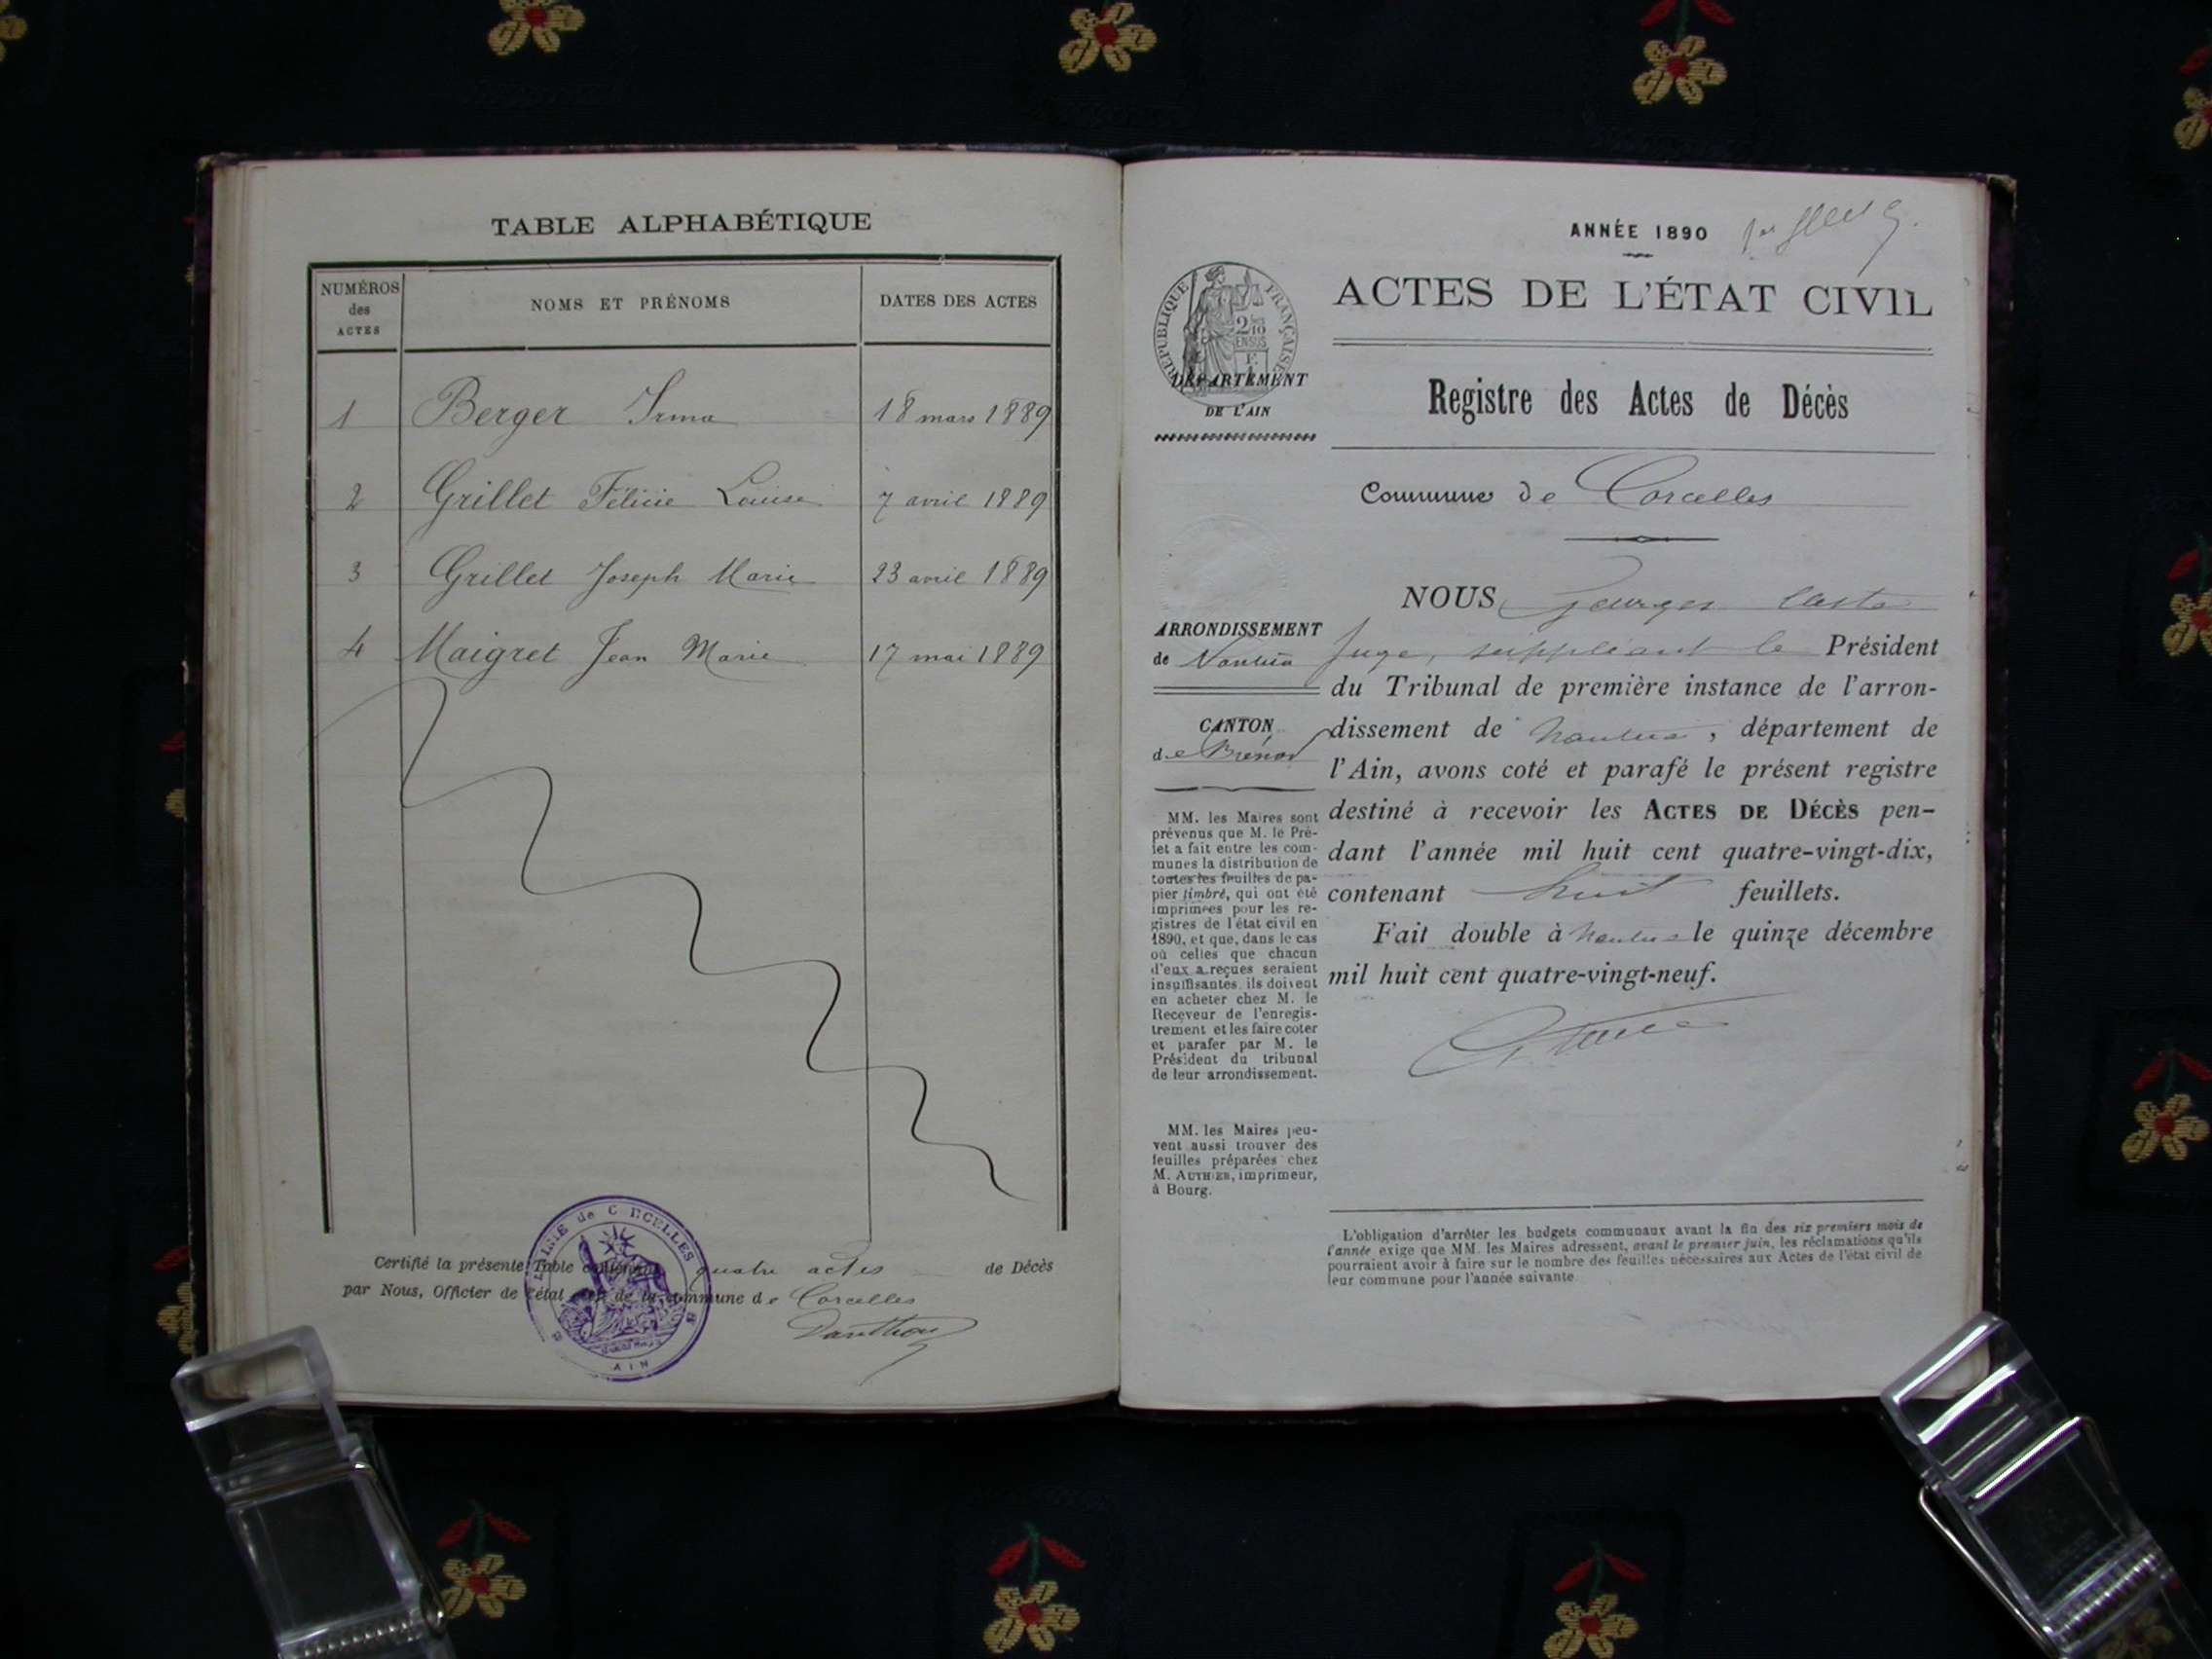 TABLE ALPHABÉTIQUE
NUMÉROS des ACTES
NOMS ET PRÉNOMS
DATES DES ACTES
1 Berger Irma 18 mars 1889
2 Grillet Félicie Louise 7 avril 1889
3 Grillet Joseph Marie 23 avril 1889
4 Maigret Jean Marie 17 mai 1889
Certifié la présente Table contenant quatre actes de Décès
par Nous, Officier de l'état civil de la commune de Corcelles
MAIRIE de CORCELLES
AIN
ANNÉE 1890
ACTES DE L'ÉTAT CIVIL
RÉPUBLIQUE FRANÇAISE
2/10 EN SUS
DÉPARTEMENT
DE L'AIN
Registre des Actes de Décès
Commune de Corcelles
ARRONDISSEMENT
de Nantua
CANTON
de Brénod
MM. les Maires sont
prévenus que M. le Pré-
fet a fait entre les com-
munes la distribution de
toutes les feuilles de pa-
pier timbré, qui ont été
imprimées pour les re-
gistres de l'état civil en
1890, et que, dans le cas
où celles que chacun
d'eux a reçues seraient
insuffisantes, ils doivent
en acheter chez M. le
Receveur de l'enregis-
trement et les faire coter
et parafer par M. le
Président du tribunal
de leur arrondissement.
MM. les Maires peu-
vent aussi trouver des
feuilles préparées chez
M. AUTHIER, imprimeur,
à Bourg.
NOUS Georges
Juge, suppléant le Président
du Tribunal de première instance de l'arron-
dissement de Nantua, département de
l'Ain, avons coté et parafé le présent registre
destiné à recevoir les ACTES DE DÉCÈS pen-
dant l'année mil huit cent quatre-vingt-dix,
contenant huit feuillets.
Fait double à Nantua le quinze décembre
mil huit cent quatre-vingt-neuf.
L'obligation d'arrêter les budgets communaux avant la fin des six premiers mois de
l'année exige que MM. les Maires adressent, avant le premier juin, les réclamations qu'ils
pourraient avoir à faire sur le nombre des feuilles nécessaires aux Actes de l'état civil de
leur commune pour l'année suivante